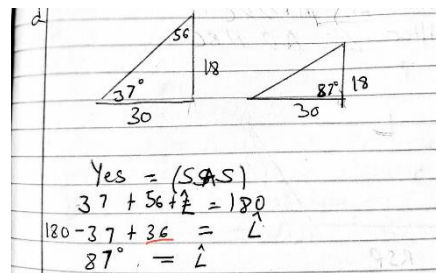 d
56
18
37°
30
87°
18
30
Yes = (SAS)
37 + 56 + L̂ = 180
180 - 37 + 36 = L̂
87° = L̂